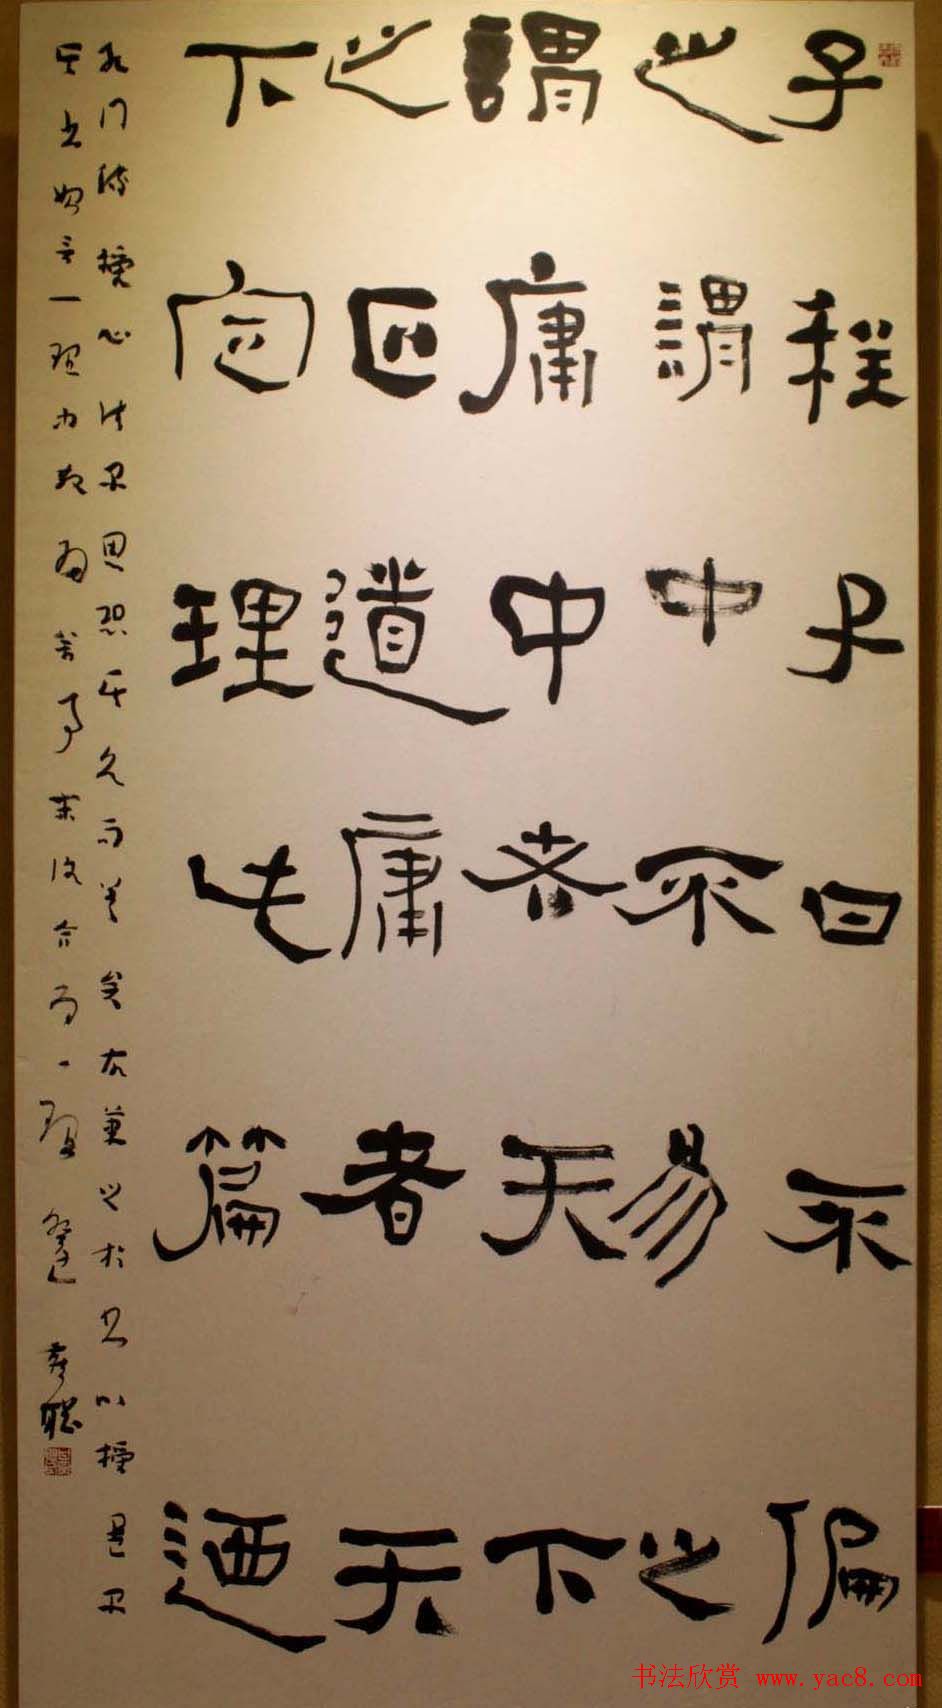 子程子曰不偏
之謂中不易之
謂庸中者天下
之正道庸者天
下定理此篇迺
孔门傳授心法子思恐其久而差矣故筆之於書以授孟子
其书始言一理中散為萬事末復合為一理癸巳
书法欣赏 www.yac8.com